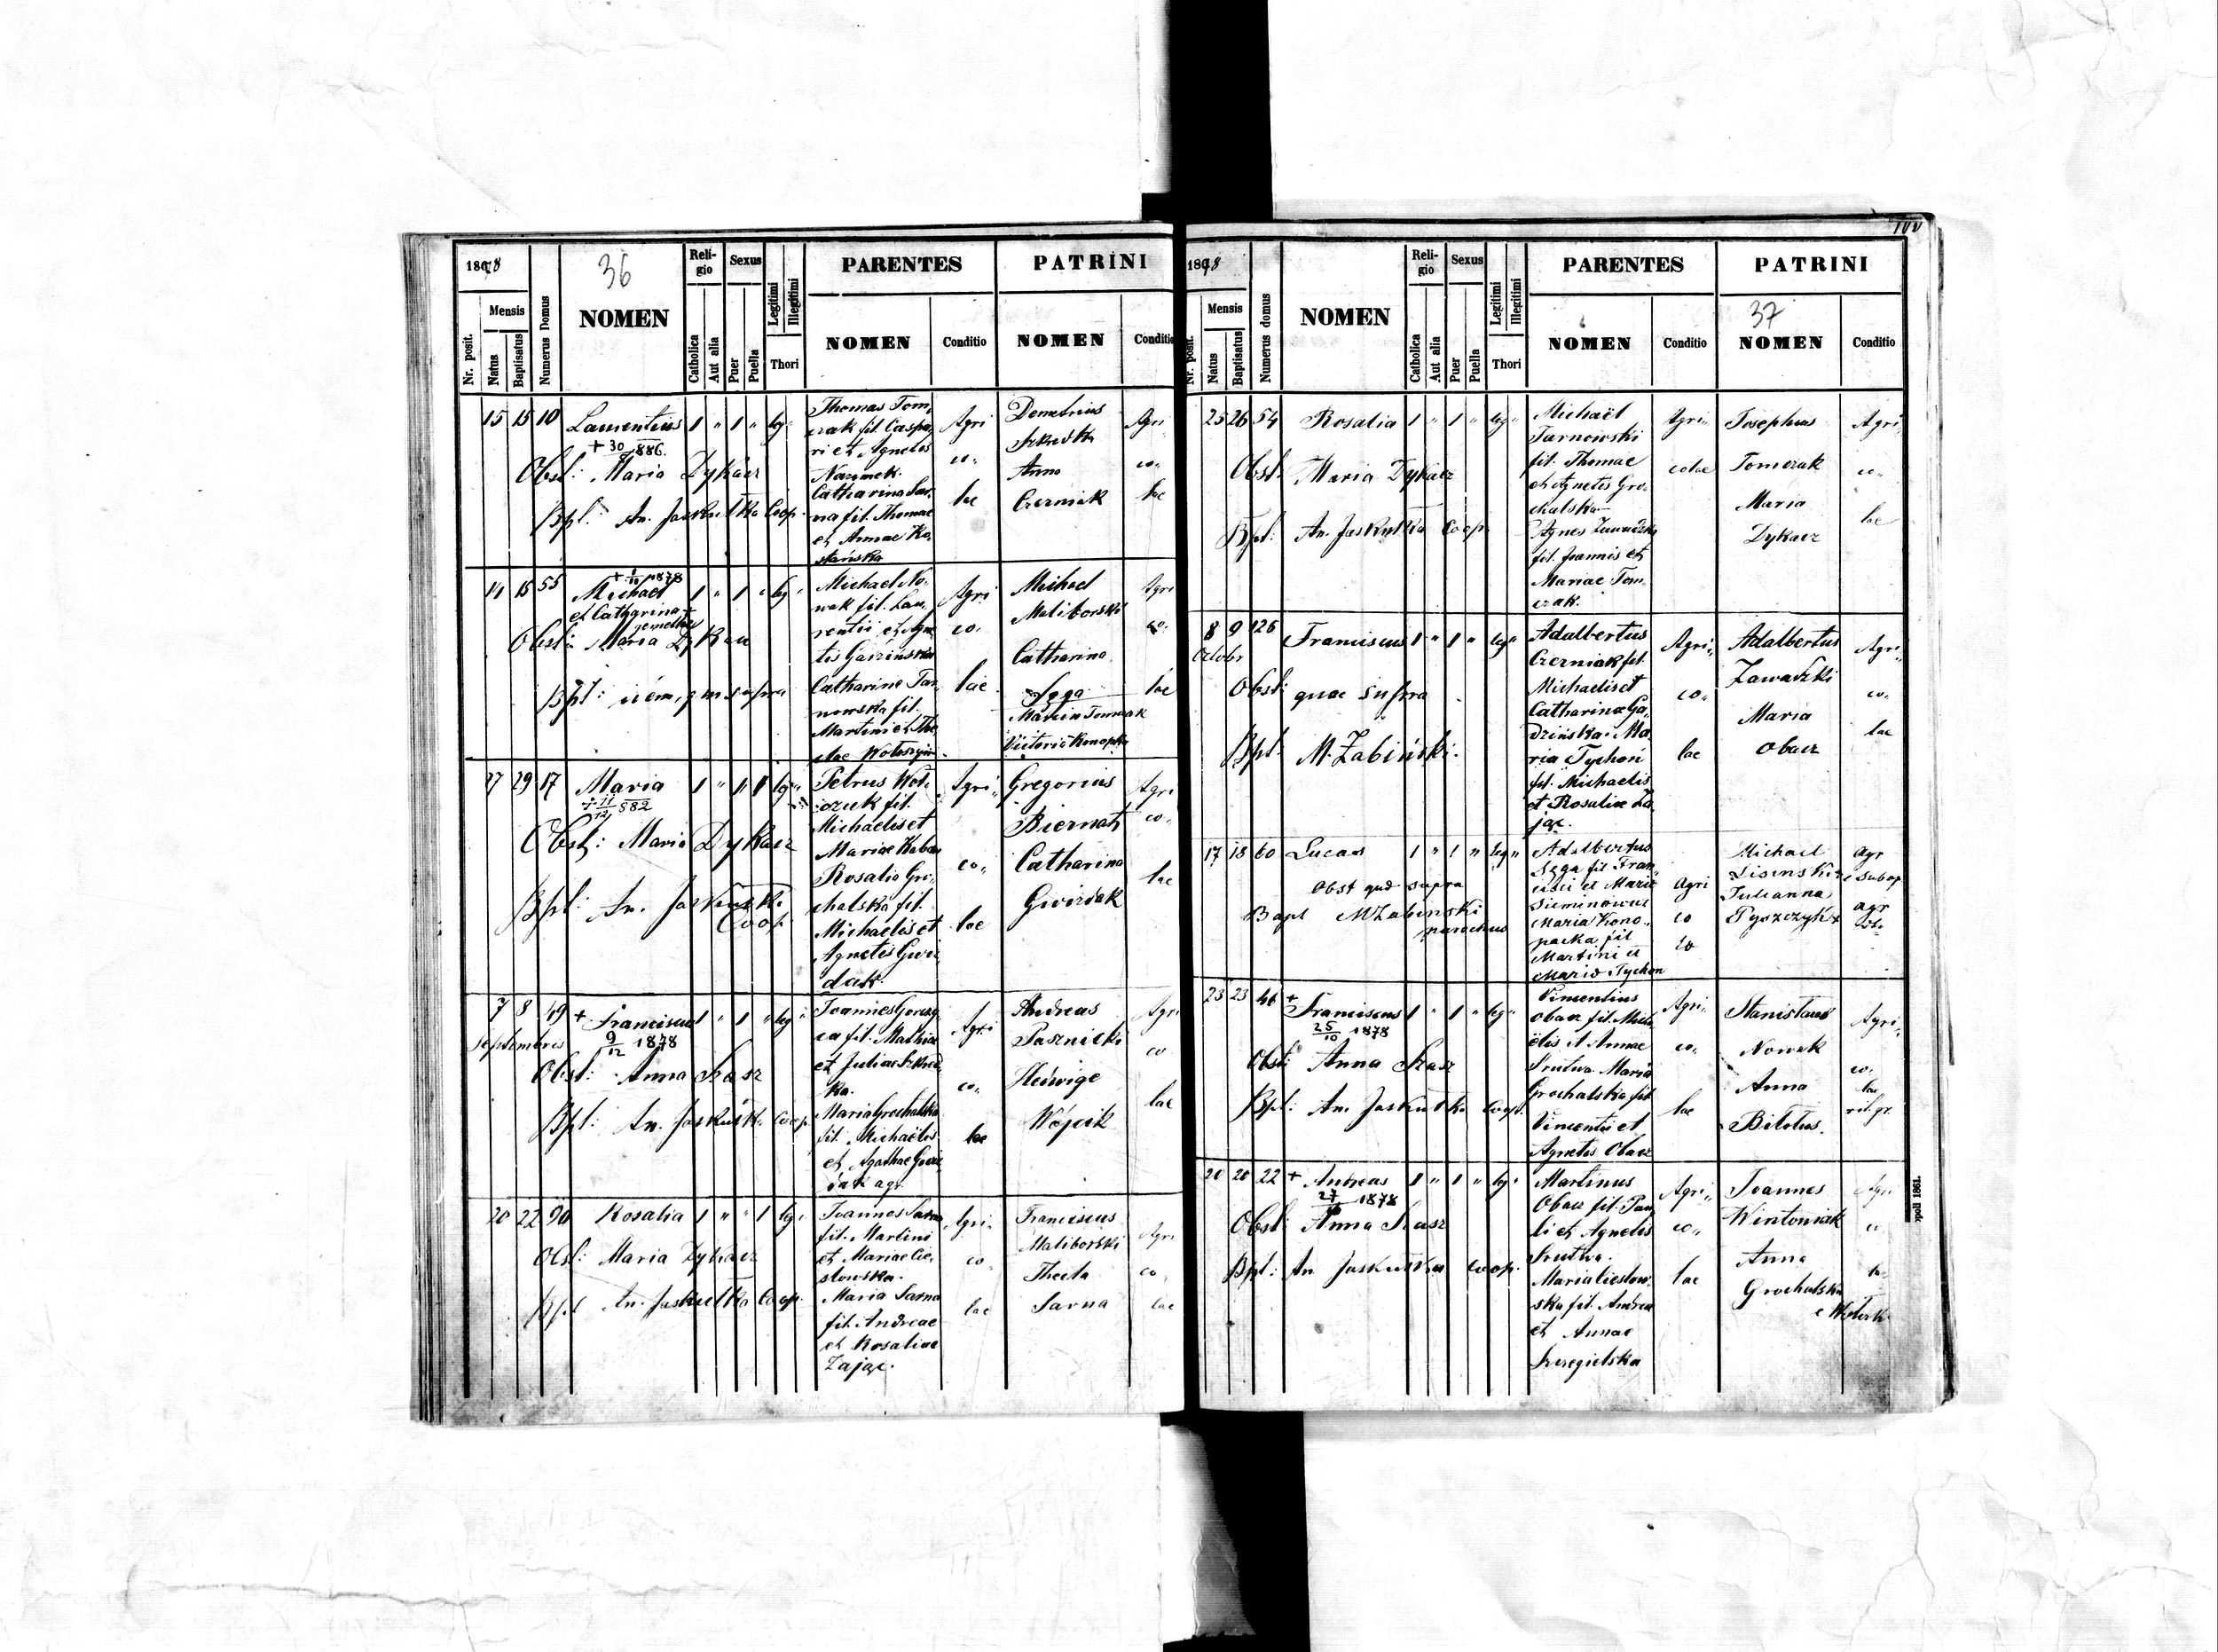 1878
36
Nr. posit.
Mensis
Natus
Baptisatus
Numerus Domus
NOMEN
Reli-
gio
Catholica
Aut alia
Sexus
Puer
Puella
Legitimi
Illegitimi
Thori
PARENTES
NOMEN
Conditio
PATRINI
NOMEN
Conditio
15 15 10 Laurentius 1 " 1 " leg"
+ 30 886.
Obst: Maria Dykacz
Bpl: An. Jaskułka Coop.
Thomas Tom,
czak fil. Caspa,
ri et Agnetis
Catharina Sar,
na fil. Thomae
et Annae Ko,
stańska
Agri
co,,
lae
Demetrius
Anna
Czerniak
Agri
co,,
lae
14 15 55 Michael 1 " 1 " leg"
+ 1878
et Catharina +
gemelli
Obst: Maria Dykacz
Bpl: idem, qui supra
Michael No,
wak fil. Lau,
rentii et Agne
tis
Catharina Tar,
nowska fil.
Martini et The
clae
Agri
co,
lae
Michael
Maliborski
Catharina
Sega
Victoria Konopka
Agri
co,
lae
27 29 17 Maria 1 " 1 leg"
+ 11/12 882
Obst: Maria Dykacz
Bpl: An. Jaskułka
Coop
Petrus Woł,
czuk fil.
Michaelis et
Mariae
Rosalia Gro,
chalska fil.
Michaelis et
Agnetis Gwi
dak.
Agri,,
co,,
lae
Gregorius
Biernat
Catharina
Gwizdak
Agri
co,
lae
7 8 49 + Franciscus 1 " 1 " leg"
septembris 9/12 1878
Obst: Anna Szasz
Bpl: An. Jaskułk. coop.
Joannes
ca fil. Mathiae
et Juliae
ka.
Maria Grochalska
fil. Michaelis
et Agathae Gwiz
dak agr.
Agri
co,,
lae
Andreas
Pasznicki
Hedwige
Wójcik
Agri
co
lae
20 22 90 Rosalia 1 " " 1 leg"
Obst: Maria Dykacz
Bpl An. Jaskułka Coop.
Joannes Sarna
fil. Martini
et Mariae Cie,
slowska.
Maria Sarna
fil. Andreae
et Rosaliae
Zając.
Agri
co
lae
Franciscus
Maliborski
Thecla
Sarna
Agri
co,
lae
1878
Nr. posit.
Mensis
Natus
Baptisatus
Numerus domus
NOMEN
Reli-
gio
Catholica
Aut alia
Sexus
Puer
Puella
Legitimi
Illegitimi
Thori
PARENTES
NOMEN
Conditio
PATRINI
37
NOMEN
Conditio
25 26 54 Rosalia 1 " 1 " leg"
Obst. Maria Dykacz
Bpl: An. Jaskułka Coop.
Michaël
Tarnowski
fil. Thomae
et Agnetis Gro,
chalska
Agnes Zawadzka
fil. Joannis et
Mariae Tom,
czak.
Agri,,
colae
Josephus
Tomczak
Maria
Dykacz
Agri
co,,
lae
8 9 126 Franciscus 1 " 1 " leg"
Octobr
Obst: quae supra
Bpl: M. Żabiński.
Adalbertus
Czerniak fil.
Michaelis et
Catharinae Ga,
dzińska. Ma,
ria Tychoń
fil. Michaelis
et Rosaliae Za
jąc.
Agri,,
co,,
lae
Adalbertus
Zawadzki
Maria
Obacz
Agri,
co,,
lae
17 18 60 Lucas 1 " 1 " leg"
Obst quae supra
Bapt M Żabiński
parochus
Adalbertus
Sęga fil Fran,
cisci et Mariae
Maria Kono,
packa fil
Martini et
Maria Tychon
Agri
co
Michael
Julianna
Agr
agr
23 23 46 + Franciscus 1 " 1 " leg"
25/10 1878
Obst: Anna Szasz
Bpl: An. Jaskułka coop.
Vincentius
Obacz fil. Mich,
ëlis et Annae
Srutwa Maria
Grochalska fil
Vincentii et
Agnetis Obacz
Agri,
co,
lae
Stanislaus
Nowak
Anna
Bilotus.
Agri,,
co,
lae
rit. gr.
20 20 22 + Andreas 1 " 1 " leg"
27 1878
Obst: Anna Szasz
Bpl: An Jaskułka coop.
Martinus
Obacz fil. Pau
li et Agnetis
Srutwa.
Maria Cieslow,
ska fil. Andreae
et Annae
Szeregielska
Agri,,
co,,
lae
Joannes
Wintoniak
Anna
Grochalska
Agri